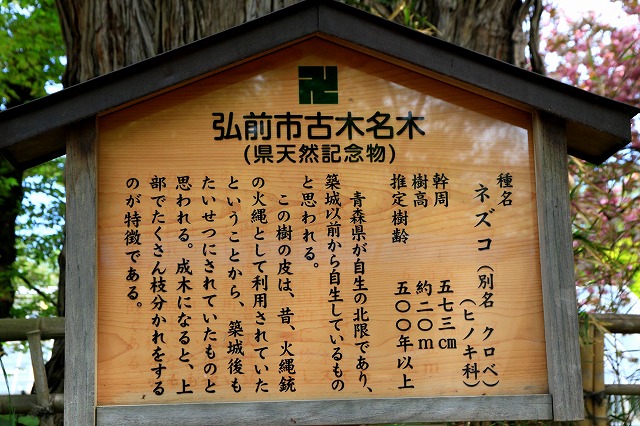 卍
弘前市古木名木
(県天然記念物)
種名
ネズコ(別名 クロベ)
(ヒノキ科)
幹周 五七三㎝
樹高 約二〇m
推定樹齢 五〇〇年以上
青森県が自生の北限であり、
築城以前から自生しているもの
と思われる。
この樹の皮は、昔、火縄銃
の火縄として利用されていた
ということから、築城後も
たいせつにされていたものと
思われる。成木になると、上
部でたくさん枝分かれをする
のが特徴である。